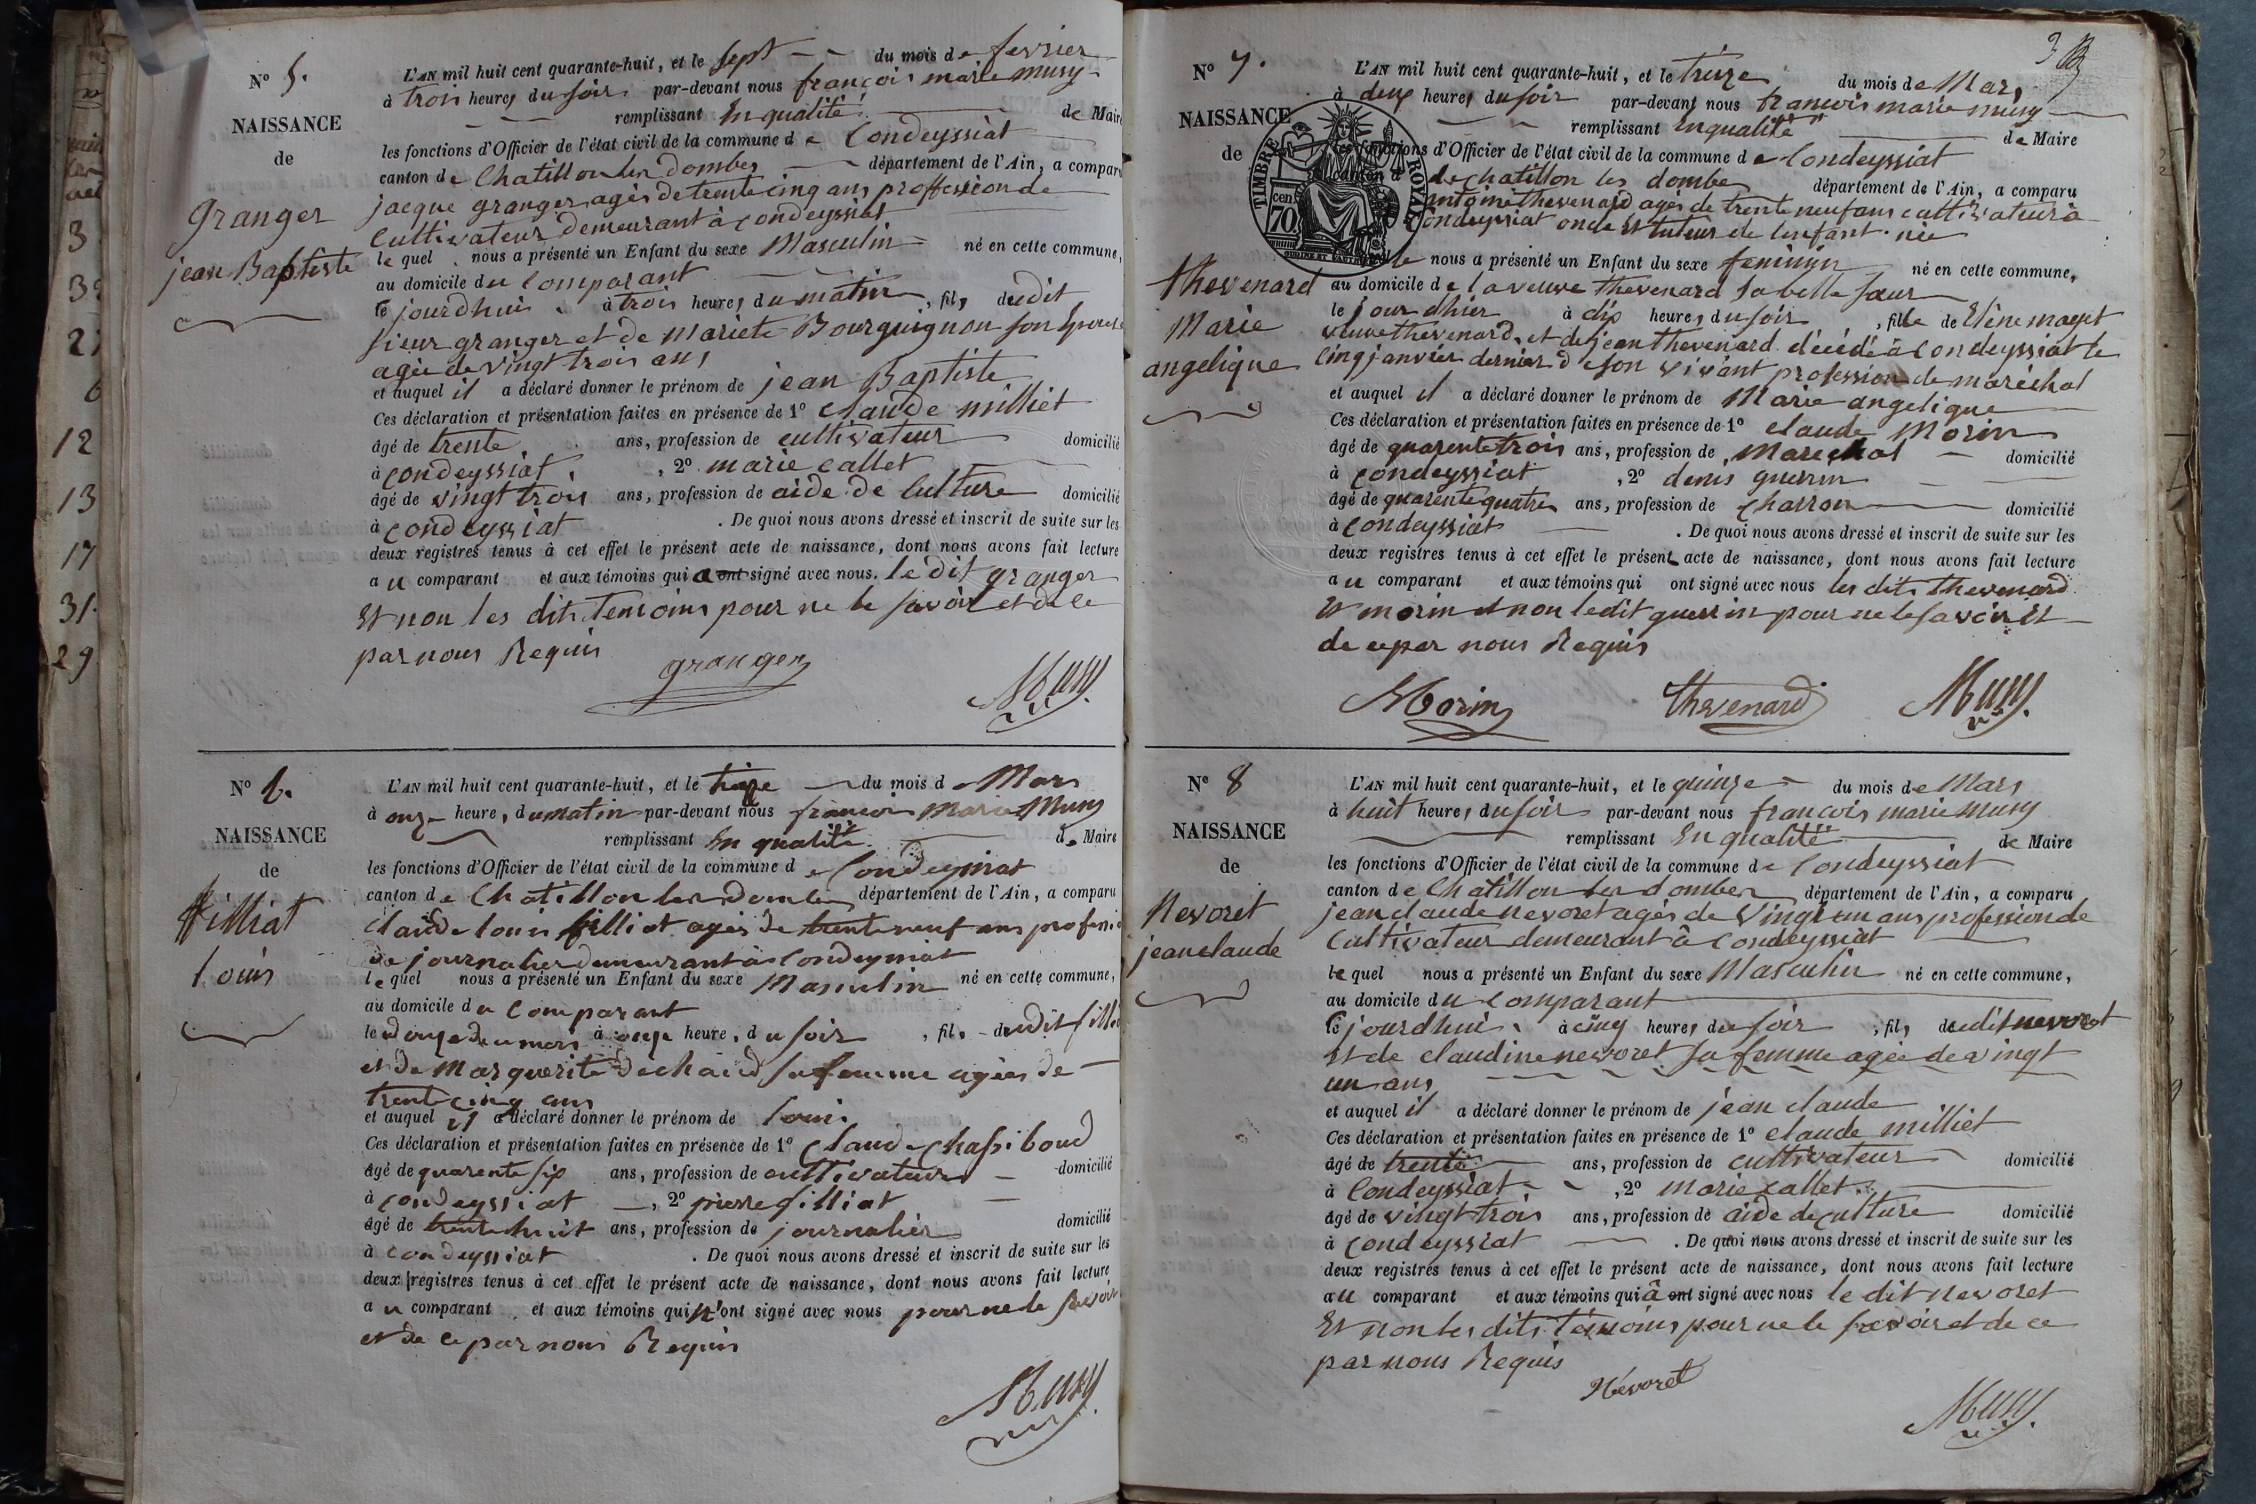 N° 5.
NAISSANCE
de
Granger
jean Baptiste
L'AN mil huit cent quarante-huit, et le sept du mois de fevrier
à trois heures du soir par-devant nous françois marie musy
remplissant En qualité de Maire
les fonctions d'Officier de l'état civil de la commune de Condeyssiat
canton de Chatillon les dombes département de l'Ain, a comparu
jacque granger agés de trente cinq ans proffession de
Cultivateur demeurant à condeyssiat
lequel nous a présenté un Enfant du sexe Masculin né en cette commune,
au domicile du Comparant
le jourdhui à trois heures du matin, fils dudit
sieur granger et de Mariete Bourguignon son Epouse
agée de vingt trois ans
et auquel il a déclaré donner le prénom de jean Baptiste
Ces déclaration et présentation faites en présence de 1° claude milliet
âgé de trente ans, profession de cultivateur domicilié
à condeyssiat, 2° marie callet
âgé de vingt trois ans, profession de aide de Culture domicilié
à condeyssiat. De quoi nous avons dressé et inscrit de suite sur les
deux registres tenus à cet effet le présent acte de naissance, dont nous avons fait lecture
au comparant et aux témoins qui a ont signé avec nous. le dit granger
Et non les dits temoins pour ne le savoir et de ce
par nous Requis
granger
Musy
N° 6.
NAISSANCE
de
filliat
Louis
L'AN mil huit cent quarante-huit, et le treize du mois de Mars
à onze heure, du matin par-devant nous françois Marie Musy
remplissant En qualité de Maire
les fonctions d'Officier de l'état civil de la commune de Condeyssiat
canton de Chatillon les Dombes département de l'Ain, a comparu
Claude louis filliat agés de trente neuf ans profession
de journalier demeurant à Condeyssiat
lequel nous a présenté un Enfant du sexe Masculin né en cette commune,
au domicile du Comparant
le douze du mois à onze heure, du soir, fils dudit filliat
et de Marguerite Dechaud sa femme agées de
trente cinq ans
et auquel il a déclaré donner le prénom de louis
Ces déclaration et présentation faites en présence de 1° Claude Chassiboud
âgé de quarente six ans, profession de cultivateur domicilié
à condeyssiat, 2° pierre filliat
âgé de trente huit ans, profession de journalier domicilié
à condeyssiat. De quoi nous avons dressé et inscrit de suite sur les
deux registres tenus à cet effet le présent acte de naissance, dont nous avons fait lecture
au comparant et aux témoins qui n'ont signé avec nous pour ne le savoir
et de ce par nous Requis
Musy
N° 7.
NAISSANCE
de
thevenard
Marie
angelique
TIMBRE ROYAL
70
L'AN mil huit cent quarante-huit, et le treize du mois de Mars
à deux heures du soir par-devant nous francois marie musy
remplissant En qualité de Maire
les fonctions d'Officier de l'état civil de la commune de Condeyssiat
canton de chatillon les dombes département de l'Ain, a comparu
antoine thevenard agés de trente neuf ans cultivateur à
Condeyssiat oncle Et tuteur de lenfant née
le nous a présenté un Enfant du sexe feminin né en cette commune,
au domicile de la veuve thevenard sa belle sœur
le jour dhier à dix heures du soir, fille de Elène mayet
veuve thevenard, et de jean thevenard décédé à Condeyssiat le
cinq janvier dernier de son vivant profession de maréchal
et auquel il a déclaré donner le prénom de Marie angelique
Ces déclaration et présentation faites en présence de 1° claude Morin
âgé de quarente trois ans, profession de Marechal domicilié
à condeyssiat, 2° denis guerrin
âgé de quarente quatre ans, profession de charron domicilié
à condeyssiat. De quoi nous avons dressé et inscrit de suite sur les
deux registres tenus à cet effet le présent acte de naissance, dont nous avons fait lecture
au comparant et aux témoins qui ont signé avec nous les dits thevenard
Et morin et non ledit guerrin pour ne le savoir Et
de ce par nous Requis
Morin thevenard Musy
N° 8
NAISSANCE
de
Nevoret
jean claude
L'AN mil huit cent quarante-huit, et le quinze du mois de Mars
à huit heures du soir par-devant nous francois marie musy
remplissant En qualité de Maire
les fonctions d'Officier de l'état civil de la commune de Condeyssiat
canton de Chatillon les dombes département de l'Ain, a comparu
jean claude nevoret agés de Vingt un ans profession de
Cultivateur demeurant à Condeyssiat
lequel nous a présenté un Enfant du sexe Masculin né en cette commune,
au domicile du comparant
le jourdhui à cinq heures du soir, fils dudit nevoret
et de claudine nevoret sa femme agée de vingt
un ans
et auquel il a déclaré donner le prénom de jean claude
Ces déclaration et présentation faites en présence de 1° claude milliet
âgé de trente ans, profession de cultivateur domicilié
à Condeyssiat, 2° marie callet
âgé de vingt trois ans, profession de aide de culture domicilié
à condeyssiat. De quoi nous avons dressé et inscrit de suite sur les
deux registres tenus à cet effet le présent acte de naissance, dont nous avons fait lecture
au comparant et aux témoins qui à ont signé avec nous le dit nevoret
Et non les dits témoins pour ne le savoir et de ce
par nous Requis
Névoret
Musy